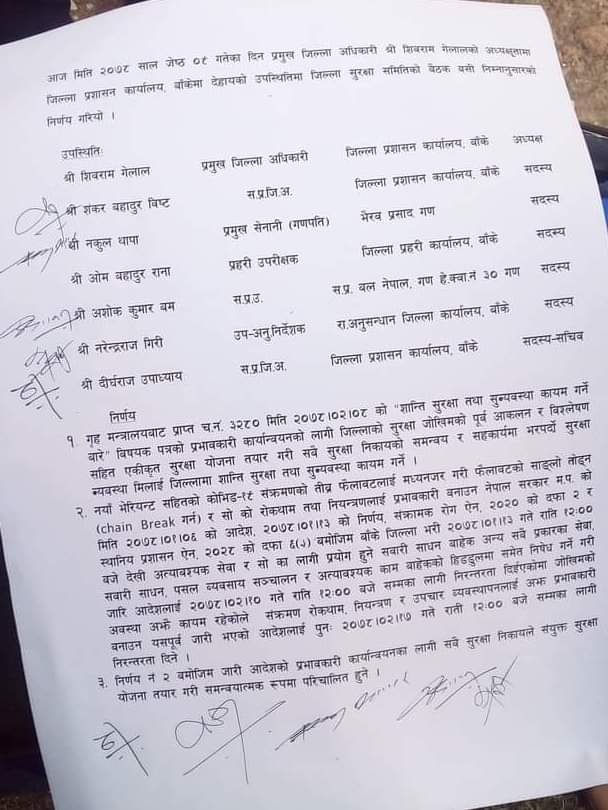 आज मिति २०७८ साल जेष्ठ ०९ गतेका दिन प्रमुख जिल्ला अधिकारी श्री शिवराम गेलालको अध्यक्षतामा
जिल्ला प्रशासन कार्यालय, बाँकेमा देहायको उपस्थितिमा जिल्ला सुरक्षा समितिको बैठक बसी निम्नानुसारको
निर्णय गरियो ।
उपस्थितिः
श्री शिवराम गेलाल प्रमुख जिल्ला अधिकारी जिल्ला प्रशासन कार्यालय, बाँके अध्यक्ष
श्री शंकर बहादुर विष्ट स.प्र.जि.अ. जिल्ला प्रशासन कार्यालय, बाँके सदस्य
श्री नकुल थापा प्रमुख सेनानी (गणपति) भैरव प्रसाद गण सदस्य
श्री ओम बहादुर राना प्रहरी उपरीक्षक जिल्ला प्रहरी कार्यालय, बाँके सदस्य
श्री अशोक कुमार बम स.प्र.उ. स.प्र. बल नेपाल, गण हे.क्वा.नं ३० गण सदस्य
श्री नरेन्द्रराज गिरी उप-अनुनिर्देशक रा.अनुसन्धान जिल्ला कार्यालय, बाँके सदस्य
श्री दीर्घराज उपाध्याय स.प्र.जि.अ. जिल्ला प्रशासन कार्यालय, बाँके सदस्य-सचिव
निर्णय
१. गृह मन्त्रालयबाट प्राप्त च.नं. ३२८० मिति २०७८।०२।०८ को "शान्ति सुरक्षा तथा सुव्यवस्था कायम गर्ने
बारे" विषयक पत्रको प्रभावकारी कार्यान्वयनको लागी जिल्लाको सुरक्षा जोखिमको पूर्व आकलन र विश्लेषण
सहित एकीकृत सुरक्षा योजना तयार गरी सवै सुरक्षा निकायको समन्वय र सहकार्यमा भरपर्दो सुरक्षा
व्यवस्था मिलाई जिल्लामा शान्ति सुरक्षा तथा सुव्यवस्था कायम गर्ने ।
२. नयाँ भेरियन्ट सहितको कोभिड-१९ संक्रमणको तीव्र फैलावटलाई मध्यनजर गरी फैलावटको साङ्लो तोड्न
(chain Break गर्न) र सो को रोकथाम तथा नियन्त्रणलाई प्रभावकारी बनाउन नेपाल सरकार म.प. को
मिति २०७८।०१।०६ को आदेश, २०७८।०१।१३ को निर्णय, संक्रामक रोग ऐन, २०२० को दफा २ र
स्थानिय प्रशासन ऐन, २०२८ को दफा ६(५) बमोजिम बाँके जिल्ला भरी २०७८।०१।१३ गते राति १२:००
बजे देखी अत्यावश्यक सेवा र सो का लागी प्रयोग हुने सवारी साधन बाहेक अन्य सवै प्रकारका सेवा,
सवारी साधन, पसल व्यवसाय सञ्चालन र अत्यावश्यक काम बाहेकको हिडडुलमा समेत निषेध गर्ने गरी
जारि आदेशलाई २०७८।०२।१० गते राति १२:०० बजे सम्मका लागी निरन्तरता दिईएकोमा जोखिमको
अवस्था अझै कायम रहेकोले संक्रमण रोकथाम, नियन्त्रण र उपचार व्यवस्थापनलाई अझ प्रभावकारी
बनाउन यसपूर्व जारी भएको आदेशलाई पुनः २०७८।०२।१७ गते राती १२:०० बजे सम्मका लागी
निरन्तरता दिने ।
३. निर्णय नं २ बमोजिम जारी आदेशको प्रभावकारी कार्यान्वयनका लागी सवै सुरक्षा निकायले संयुक्त सुरक्षा
योजना तयार गरी समन्वयात्मक रूपमा परिचालित हुने ।